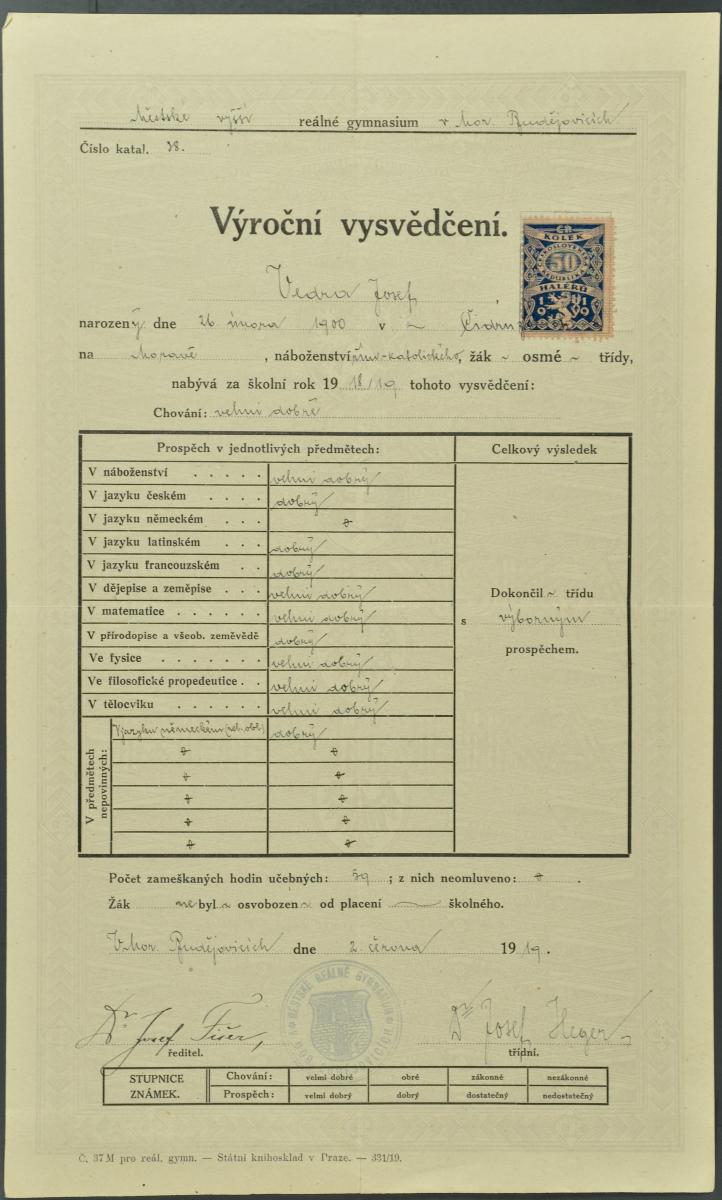 Městské vyšší reálné gymnasium v Mor. Budějovicích
Číslo katal. 38.
Výroční vysvědčení.
ČR
KOLEK
ČESKOSLOVENSKÁ
REPUBLIKA
50
HALÉŘŮ
1919
Vedra Josef,
narozený dne 26. února 1900 v ~
na Moravě, náboženství řím.-katolického, žák ~ osmé ~ třídy,
nabývá za školní rok 1918/19 tohoto vysvědčení:
Chování: velmi dobré
Prospěch v jednotlivých předmětech: Celkový výsledek
V náboženství . . . . . velmi dobrý
V jazyku českém . . . dobrý
V jazyku německém . . .
V jazyku latinském . . . dobrý
V jazyku francouzském . . dobrý
V dějepise a zeměpise . . . velmi dobrý
V matematice . . . . . . velmi dobrý
V přírodopise a všeob. zeměvědě dobrý
Ve fysice . . . . . . . velmi dobrý
Ve filosofické propedeutice . . velmi dobrý
V tělocviku . . . . . . velmi dobrý
Dokončil ~ třídu
s výborným
prospěchem.
V předmětech
nepovinných:
V jazyku německém (rel. obl.) dobrý
Počet zameškaných hodin učebných: 59 ; z nich neomluveno: .
Žák ne byl ~ osvobozen ~ od placení školného.
V Mor. Budějovicích dne 2. června 1919.
MĚSTSKÉ REÁLNÉ GYMNASIUM
Dr Josef Fišer,
ředitel.
Dr Josef Heger
třídní.
STUPNICE
ZNÁMEK.
Chování: velmi dobré obré zákonné nezákonné
Prospěch: velmi dobrý dobrý dostatečný nedostatečný
Č. 37 M pro reál. gymn. — Státní knihosklad v Praze. — 331/19.